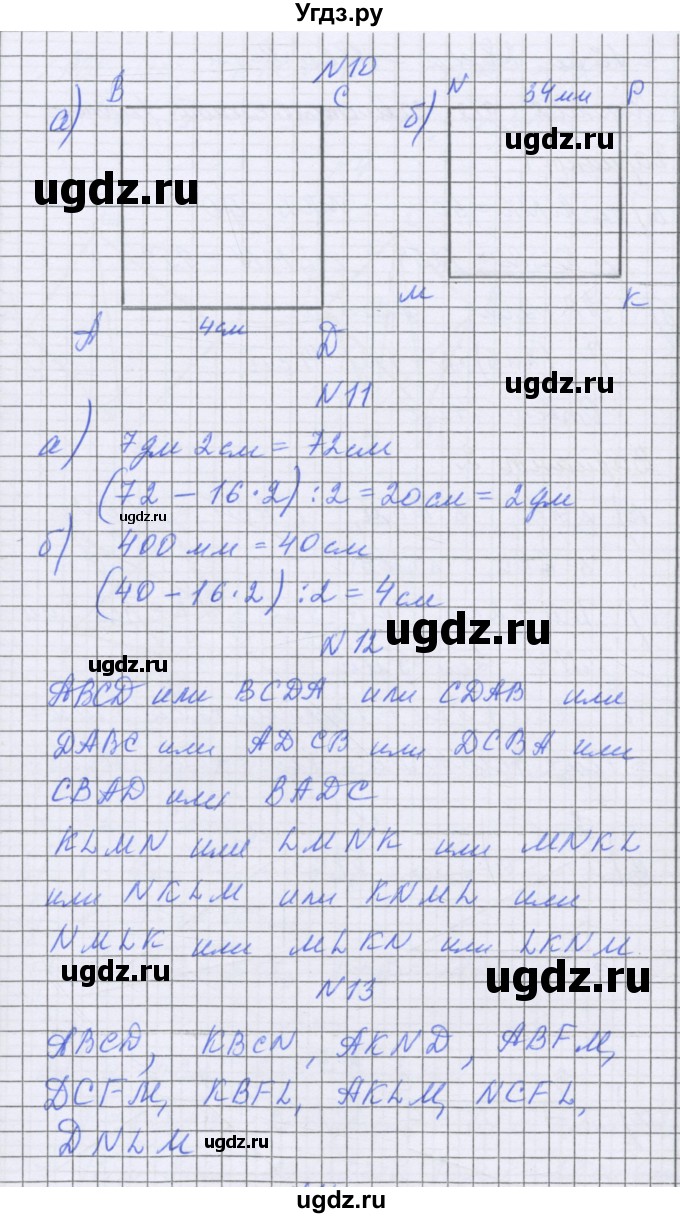 Угдз.ру
N10
а) B C б) N 34мм P
ugdz.ru
ugdz.ru
M K
A 4см D
N11
ugdz.ru
а) 7дм 2см = 72см
(72 - 16·2) : 2 = 20см = 2дм
ugdz.ru
б) 400 мм = 40см
(40 - 16·2) : 2 = 4см
ugdz.ru
N12
ugdz.ru
ABCD или BCDA или CDAB или
DABC или ADCB или DCBA или
CBAD или BADC
KLMN или LMNK или MNKL
или NKLM или KNML или
NMLK или MLKN или LKNM.
ugdz.ru
ugdz.ru
N13
ABCD, KBCN, AKND, ABFM,
DCFM, KBFL, AKLM, NCFL,
DNLM
ugdz.ru
ugdz.ru